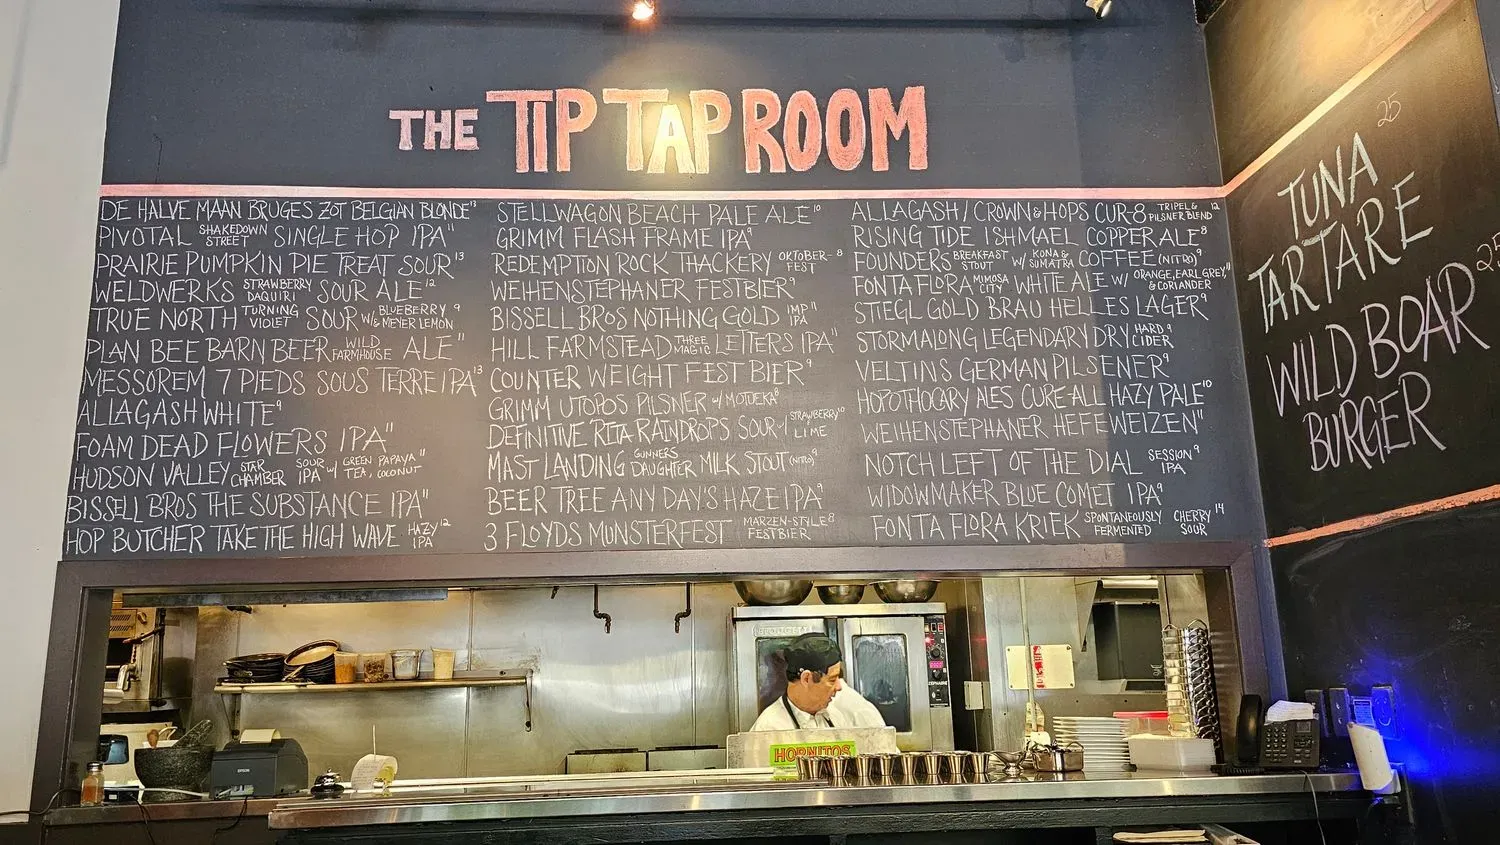 THE TIP TAP ROOM
DE HALVE MAAN BRUGES ZOT BELGIAN BLONDE 13
PIVOTAL SHAKEDOWN STREET SINGLE HOP IPA 11
PRAIRIE PUMPKIN PIE TREAT SOUR 13
WELDWERKS STRAWBERRY DAQUIRI SOUR ALE 12
TRUE NORTH TURNING VIOLET SOUR W/ BLUEBERRY & MEYER LEMON 9
PLAN BEE BARN BEER WILD FARMHOUSE ALE 11
MESSOREM 7 PIEDS SOUS TERRE IPA 13
ALLAGASH WHITE 9
FOAM DEAD FLOWERS IPA 11
HUDSON VALLEY STAR CHAMBER SOUR IPA W/ GREEN PAPAYA TEA, COCONUT 11
BISSELL BROS THE SUBSTANCE IPA 11
HOP BUTCHER TAKE THE HIGH WAVE HAZY IPA 12
STELLWAGON BEACH PALE ALE 10
GRIMM FLASH FRAME IPA 9
REDEMPTION ROCK THACKERY OKTOBER-FEST 8
WEIHENSTEPHANER FESTBIER 9
BISSELL BROS NOTHING GOLD IMP IPA 11
HILL FARMSTEAD THREE MAGIC LETTERS IPA 11
COUNTER WEIGHT FEST BIER 9
GRIMM UTOPOS PILSNER W/ MOTUEKA 8
DEFINITIVE RITA RAINDROPS SOUR-/ STRAWBERRY LIME 10
MAST LANDING GUNNERS DAUGHTER MILK STOUT (NITRO) 9
BEER TREE ANY DAY'S HAZE IPA 9
3 FLOYDS MUNSTERFEST MARZEN-STYLE FESTBIER 8
ALLAGASH / CROWN & HOPS CUR-8 TRIPEL & PILSNER BLEND 12
RISING TIDE ISHMAEL COPPER ALE 8
FOUNDERS BREAKFAST STOUT W/ KONA & SUMATRA COFFEE (NITRO) 9
FONTA FLORA MIMOSA CITY WHITE ALE W/ ORANGE, EARL GREY, & CORIANDER 11
STIEGL GOLD BRAU HELLES LAGER 9
STORMALONG LEGENDARY DRY HARD CIDER 9
VELTINS GERMAN PILSENER 9
HOPOTHOCARY ALES CURE-ALL HAZY PALE 10
WEIHENSTEPHANER HEFEWEIZEN 11
NOTCH LEFT OF THE DIAL SESSION IPA 9
WIDOWMAKER BLUE COMET IPA 9
FONTA FLORA KRIEK SPONTANEOUSLY FERMENTED CHERRY SOUR 14
25
TUNA
TARTARE
25
WILD BOAR
BURGER
HORNITOS
EPSON